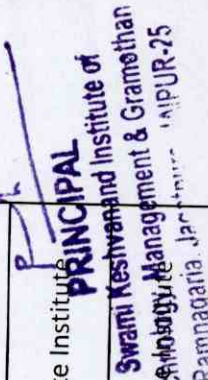 te Institute
PRINCIPAL
Swami Keshvanand Institute of
Management & Gramothan
Ramnagaria, JAIPUR-25